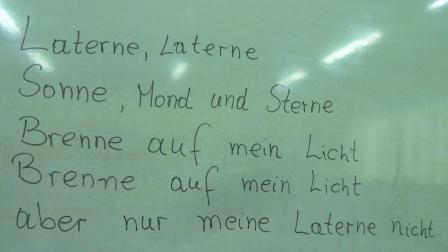 Laterne, Laterne
Sonne, Mond und Sterne
Brenne auf mein Licht
Brenne auf mein Licht
aber nur meine Laterne nicht